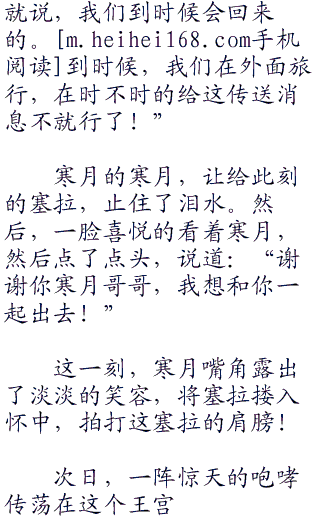 就说，我们到时候会回来
的。[m.heihei168.com手机
阅读]到时候，我们在外面旅
行，在时不时的给这传送消
息不就行了！”
寒月的寒月，让给此刻
的塞拉，止住了泪水。然
后，一脸喜悦的看着寒月，
然后点了点头，说道：“谢
谢你寒月哥哥，我想和你一
起出去！”
这一刻，寒月嘴角露出
了淡淡的笑容，将塞拉搂入
怀中，拍打这塞拉的肩膀！
次日，一阵惊天的咆哮
传荡在这个王宫